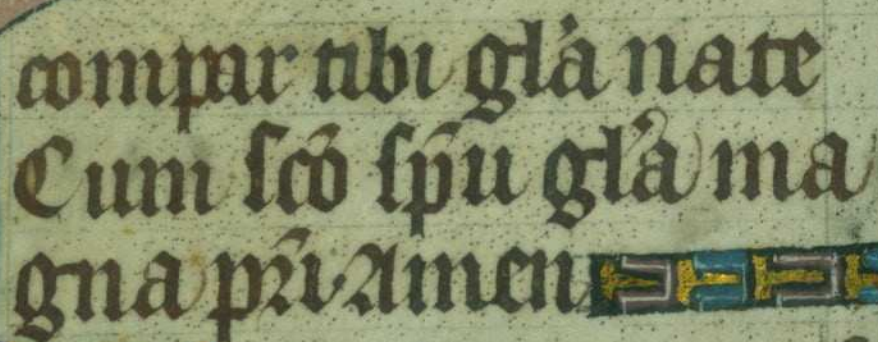 compar tibi gl̃a nate
Cum ſcõ ſp̃u gl̃a ma
gna pr̃i. Amen